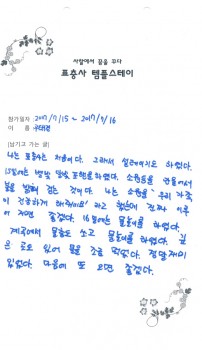 사찰에서 꿈을 꾸다
표충사 템플스테이
참가일자 2017/7/15 ~ 2017/7/16
이 름
[남기고 가는 글]
나는 표충사는 처음이다. 그래서 설레이기도 하였다.
15일에는 밤에 탑돌이를 하였다. 소원등을 만들어서
불을 밝혀 걷는 것이다. 나는 소원을 '우리 가족
이 건강하게 해주세요' 라고 했는데 진짜 이루
어 지면 좋겠다. 16일에는 물놀이를 하였다.
계곡에서 물총도 쏘고 물놀이를 하였다. 깊
은 곳도 있어 물을 조금 먹었다. 정말 재미
있었다. 다음에 또 오면 좋겠다.